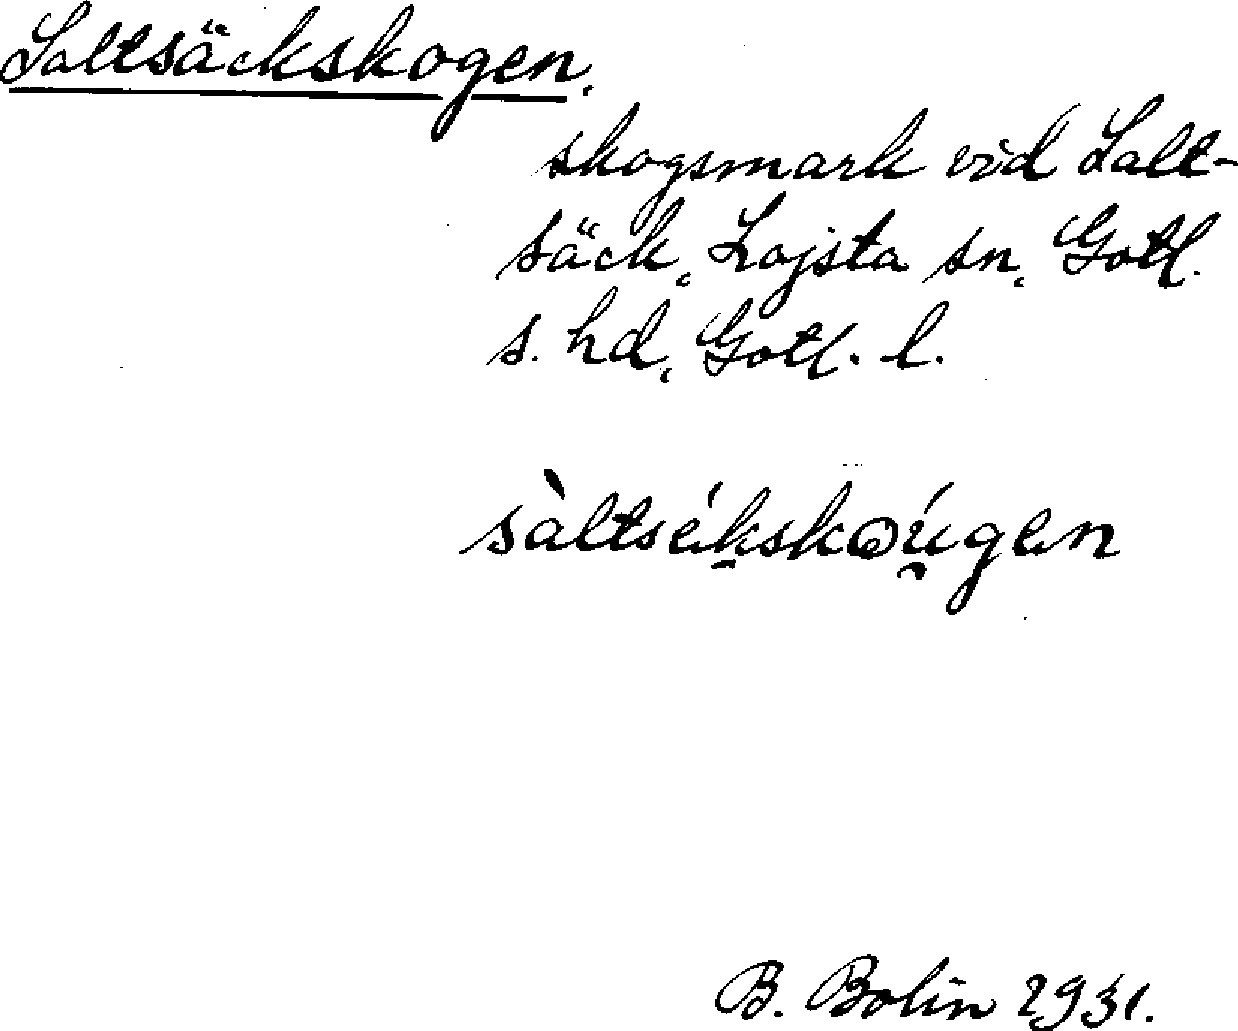 Saltsäckskogen,
skogsmark vid Salt-
säck, Lojsta sn, Gotl.
s. hd, Gotl. l.
sàltsék̠skɷú̯gen
B. Bolin 1931.